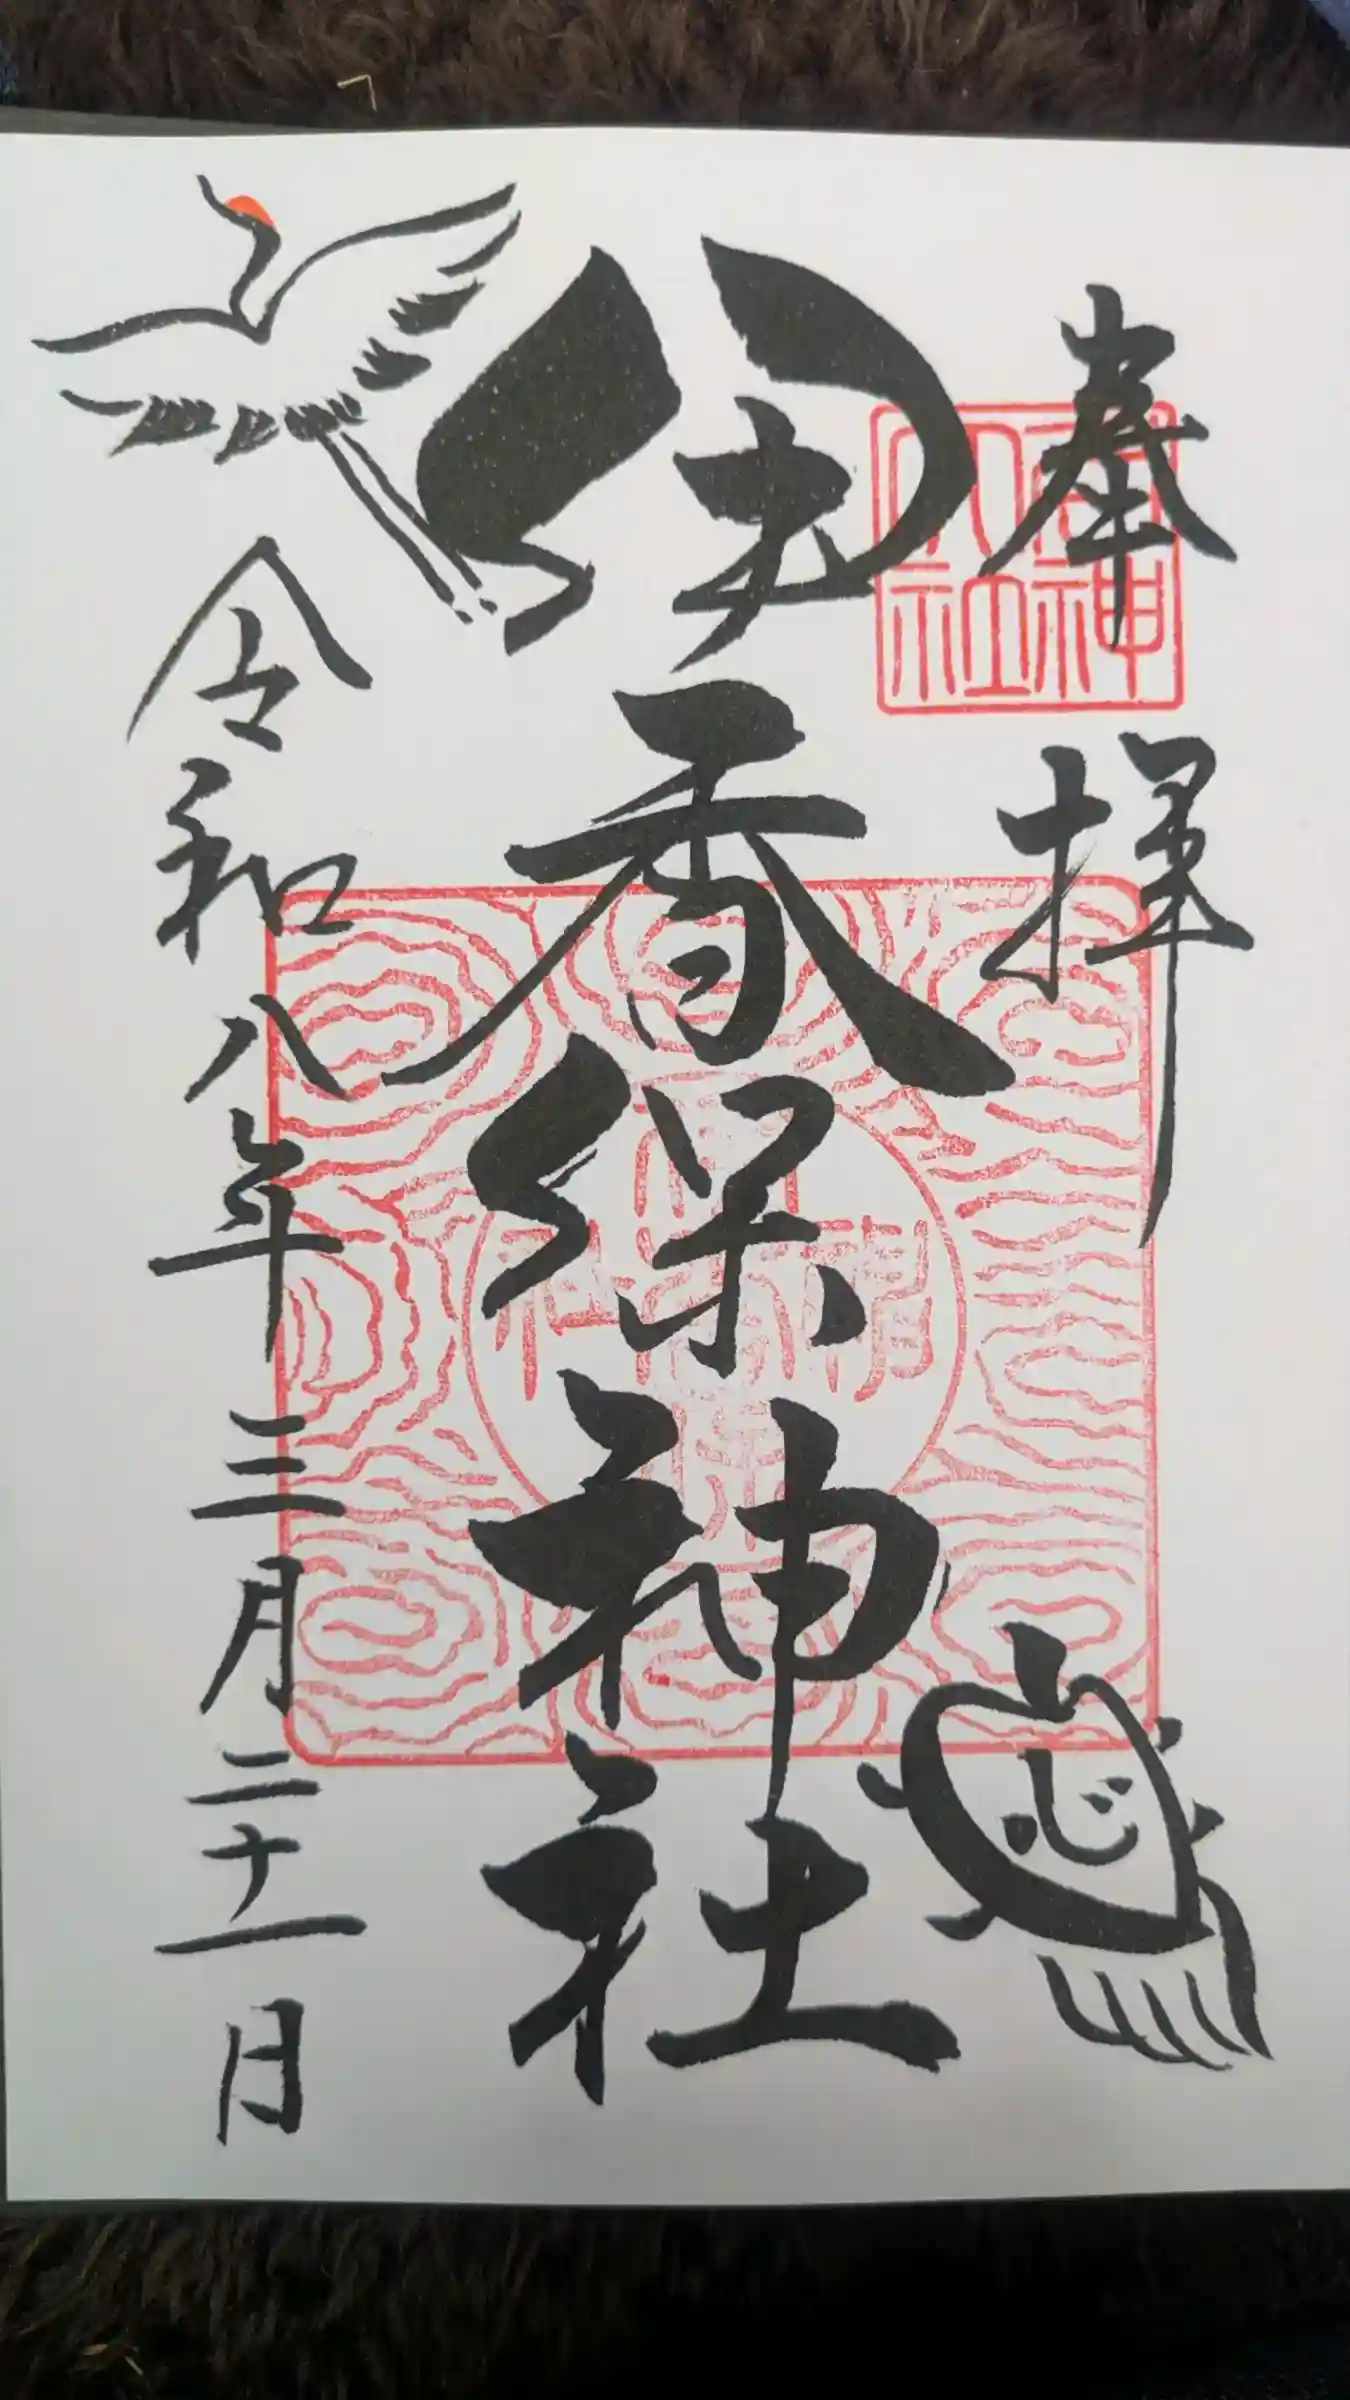 奉拝
心
伊香保神社
令和八年三月二十一日